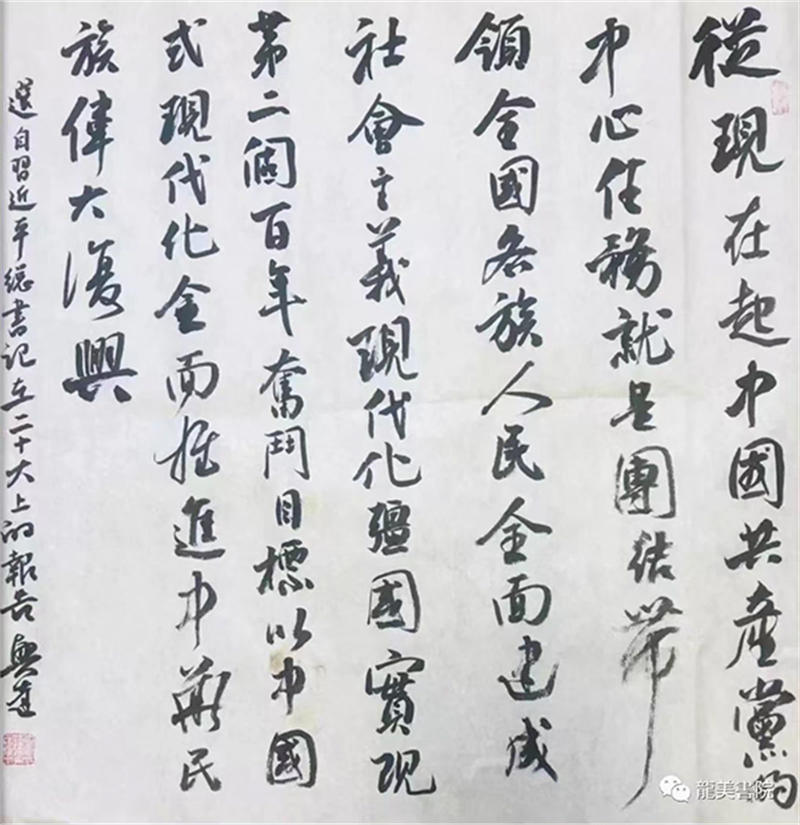 從現在起中國共產黨的
中心任務就是團結帶
領全國各族人民全面建成
社會主義現代化疆國實現
第二個百年奮鬥目標以中國
式現代化全面推進中華民
族偉大復興
選自習近平總書記在二十大上的報告 興進
龍美書院